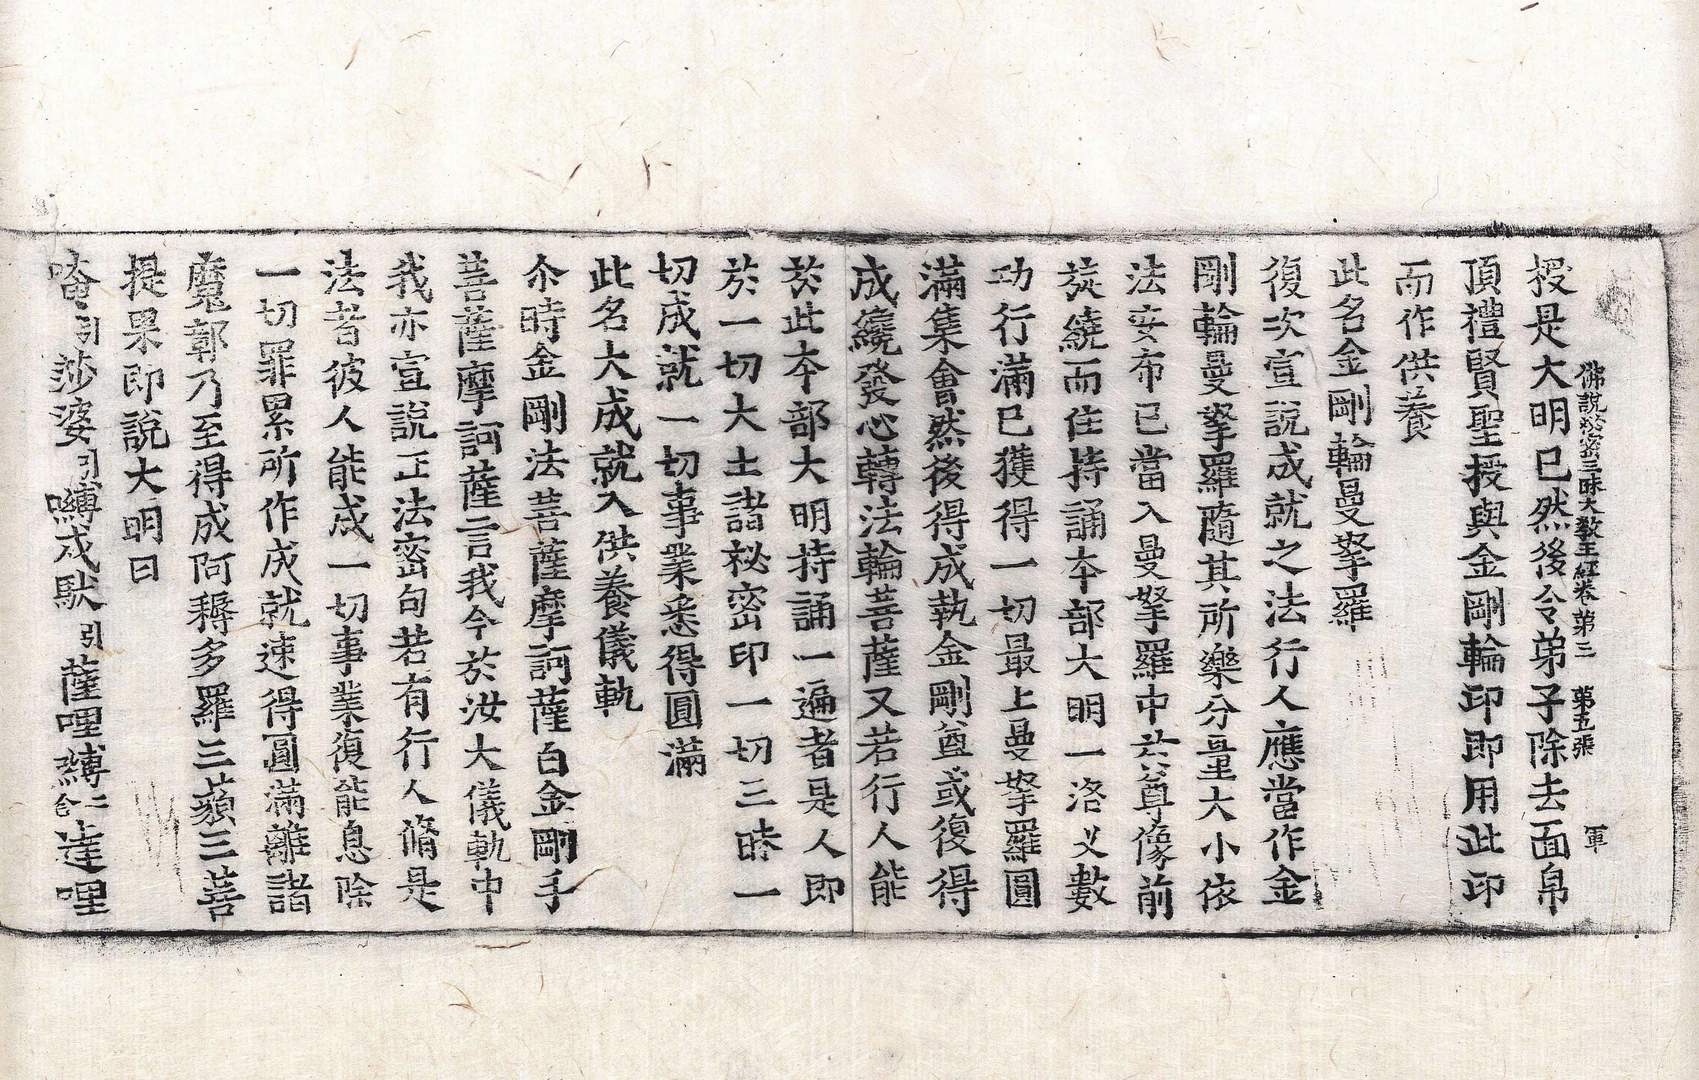 佛說秘密三昧大教王經卷第三 第五張 軍
授是大明已然後令弟子除去面帛
頂禮賢聖授與金剛輪印即用此印
而作供養
此名金剛輪曼拏羅
復次宣說成就之法行人應當作金
剛輪曼拏羅隨其所樂分量大小依
法安布已當入曼拏羅中於尊像前
旋繞而住持誦本部大明一洛叉數
功行滿已獲得一切最上曼拏羅圓
滿集會然後得成執金剛尊或復得
成纔發心轉法輪菩薩又若行人能
於此本部大明持誦一遍者是人即
於一切大士諸祕密印一切三昧一
切成就一切事業悉得圓滿
此名大成就入供養儀軌
尒時金剛法菩薩摩訶薩白金剛手
菩薩摩訶薩言我今於汝大儀軌中
我亦宣說正法密句若有行人脩是
法者彼人能成一切事業復能息除
一切罪累所作成就速得圓滿離諸
魔鄣乃至得成阿耨多羅三藐三菩
提果即說大明曰
唵引莎婆引嚩戍馱引薩哩縛二合達哩